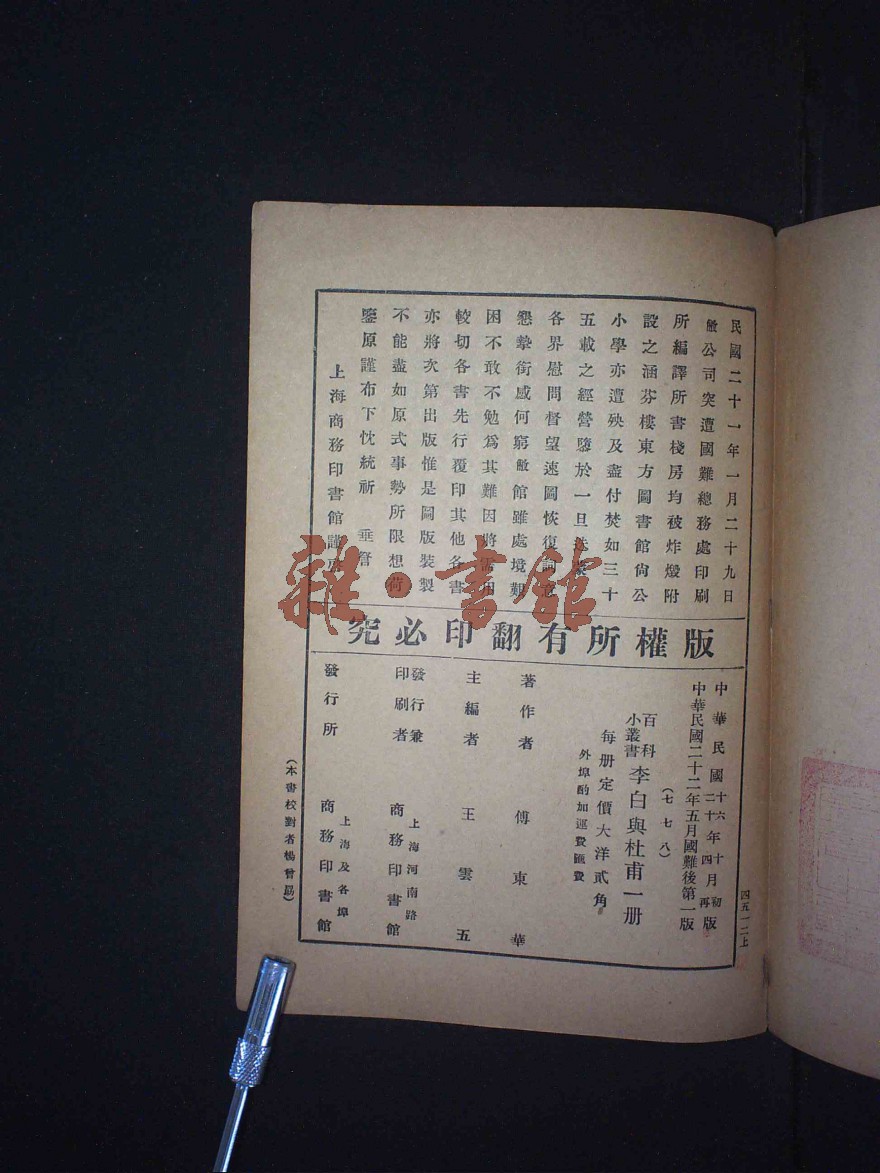 民國二十一年一月二十九日
敝公司突遭國難總務處印刷
所編譯所書棧房均被炸燬附
設之涵芬樓東方圖書館尙公
小學亦遭殃及盡付焚如三十
五載之經營隳於一旦迭蒙
各界慰問督望速圖恢復詞意
懇摯銜感何窮敝館雖處境艱
困不敢不勉爲其難因將需用
較切各書先行覆印其他各書
亦將次第出版惟是圖版裝製
不能盡如原式事勢所限想荷
鑒原謹布下忱統祈 垂詧
上海商務印書館謹啓
版權所有翻印必究
四五一二上
中華民國十六年十月初版
二十年四月再版
中華民國二十二年五月國難後第一版
(七七八)
百科小叢書 李白與杜甫一册
每册定價大洋貳角
外埠酌加運費匯費
著作者 傅東華
主編者 王雲五
發行兼印刷者 上海河南路 商務印書館
發行所 上海及各埠 商務印書館
(本書校對者楊曾勗)
雜·書館